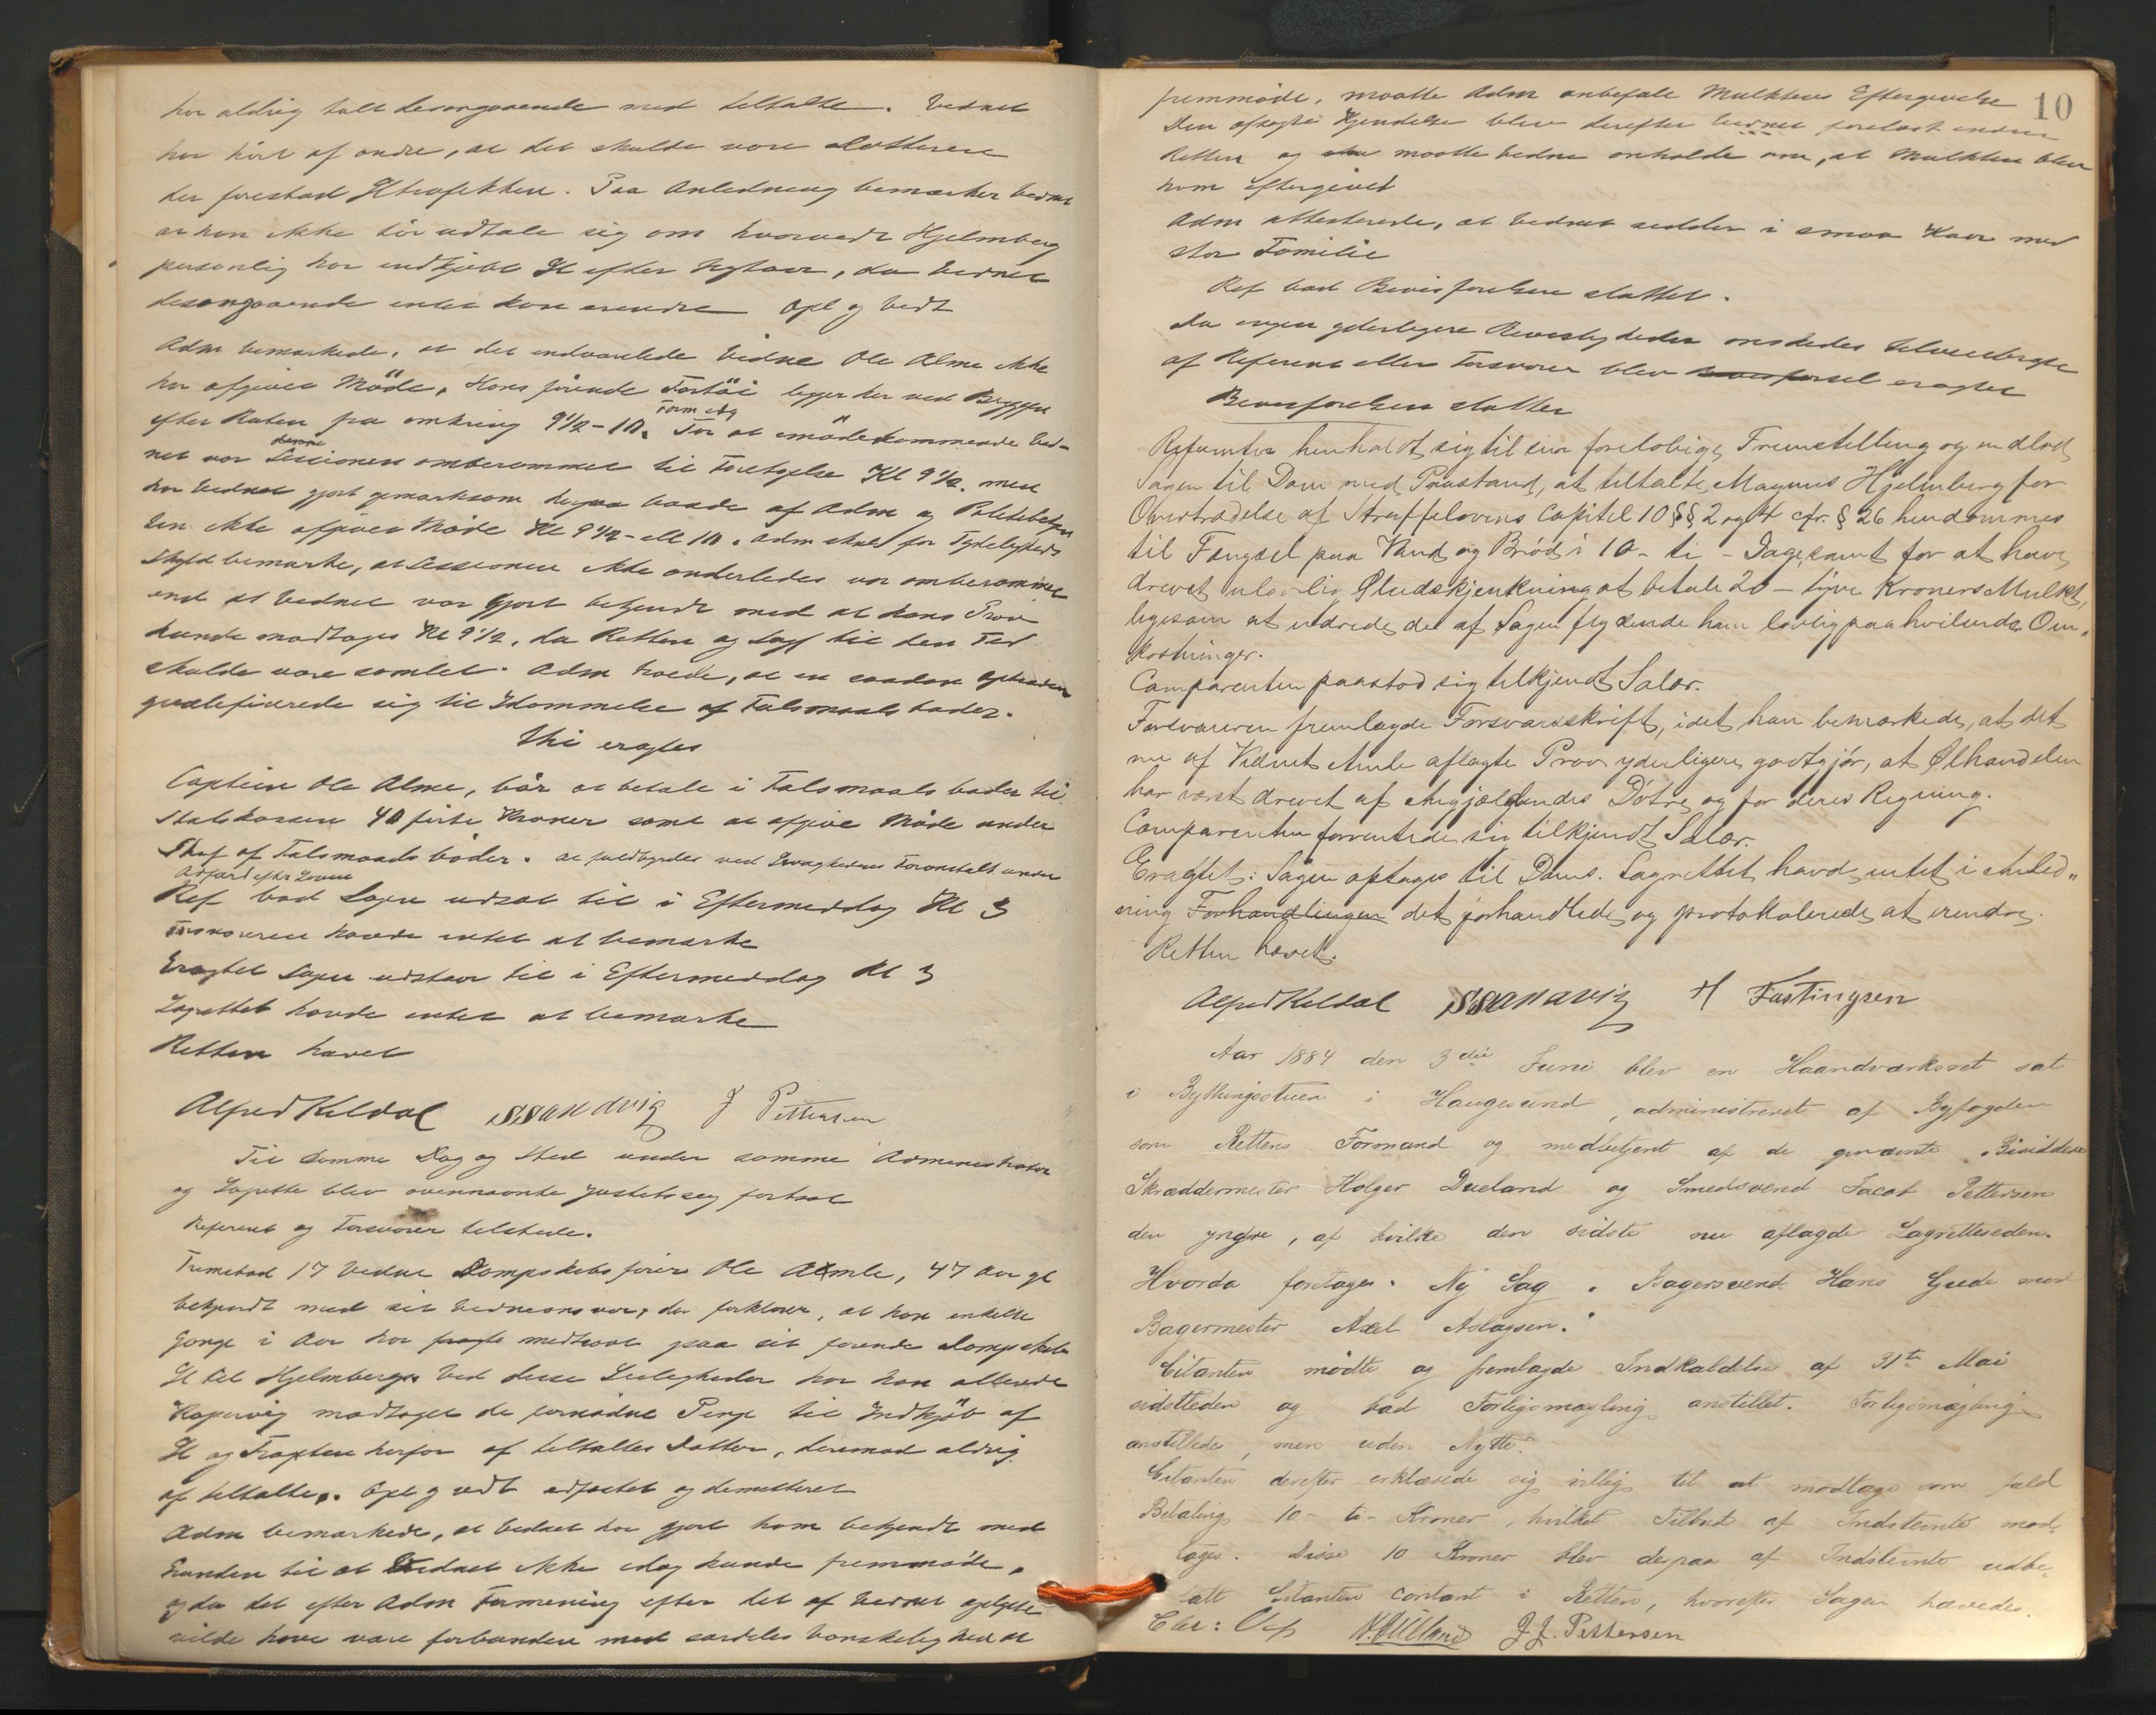 har aldrig talt desangaaende med tiltalte. Vidnet
har hört af andre, at det skulde være Døttrene
der forestod Øltrafikken. Paa Anledning bemærker Vidnet
at han ikke tör udtale sig om hvorvidt Hjelmberg
personlig har indkjöbt Øl efter, da Vidnet
desangaaende intet kan erindre Opl og vedt
Adm bemærkede, at det indvarslede Vidne Ole Alme ikke
har afgivet Möde. Hans förende Fartöi ligger her ved Bryggen
efter Ruten fra omkring 9½-10. Form idag For at imödekommende Vid-
net var denne Sessionen omberammet til Foretagelse Kl 9½. men
har Vidnet gjort opmærksom derpaa baade af Adm og Politibetjen
ten ikke afgivet Möde Kl 9½ - ell 10. Adm skal for Tydeligheds
Skyld bemærke, at Sessionen ikke anderledes var omberammet
end at Vidnet var gjort bekjendt med at hans Prov
kunde modtages Kl 9½, da Retten og Lagr til den Tid
skulde være samlet. Adm troede, at en saadan Opträden
qvalificerede sig til Idömmelse af Falsmaals böder.
Thi eragtes
Captein Ole Alme, bör at betale i Falsmaals böder til
Statskassen 40 firti Kroner samt at afgive Möde under
Straf af Falsmaals böder. at fuldbyrdes ved Foranstalt under
Adfærd efter Loven
Ref bad Sagen udsat til i Eftermiddag Kl 3
Forsvareren havde intet at bemærke
Eragtet Sagen udstaar til i Eftermiddag Kl 3
Lagrettet havde intet at bemærke
Retten hævet
Alfred Keldal SSandvig J Pettersen
Til samme Dag og Sted under samme Administrator
og Lagrette blev ovennævnte Justitssag fortsat
Referent og Forsvarer tilstede.
Fremstod 17 Vidne Dampskibsförer Ole Aamle, 47 Aar gl
bekjendt med sit Vidneansvar, der forklarer, at han enkelte
Gange i Aar har fragte medtaget paa sit förende Dampskib
Øl til Hjelmberg. Ved disse Leiligheder har han allerede
Kopervig modtaget de fornödne Penge til Indkjöb af
Øl og Fragten herfor af tiltaltes Datter, derimod aldrig
af tiltalte. Opl g vedt edfæstet og demitteret
Adm bemærkede, at Vidnet har gjort ham bekjendt med
Grunden til at Vidnet ikke idag kunde fremmöde,
og da det efter Adm Formening efter det af Vidnet oplyste
vilde have være forbunden med særdeles Vanskelighed at
10
fremmöde, maatte Adm anbefale Mulktens Eftergivelse
Den afsagte Kjendelse blev derefter Vidnet forelæst inden
Retten og maatte Vidne anholde om, at Mulkten blev
ham eftergivet
Adm attesterede, at Vidnet sidder i smaa Kaar med
stor Familie
Ref bad Bevisförelsen sluttet.
Da ingen yderligere Bevisligheder önskedes tilveiebragte
af Referent eller Forsvarer blev eragtet
Bevisförelsen sluttet
Referenten henholdt sig til sin foreløbige Fremstilling og indlod
Sagen til Dom med Paastand, at tiltalte, Magnus Hjelmberg for
Overtrædelse af Straffelovens Capitel 10 §§ 2 og 4 cfr. § 26 hendømmes
til Fængsel paa Vand og Brød i 10- ti - Dage, samt for at have
drevet ulovlig Øludskjænkning at betale 20 - tyve Kroners Mulkt,
ligesom at udrede de af Sagen flydende ham lovlig paahvilende Om„
kostninger.
Comparenten paastod sig tilkjendt Salær.
Forsvareren fremlagde Forsvarsskrift, idet han bemærkede, at det
nu af Vidnet Amle aflagte Prov yderligere godtgjør, at Ølhandelen
har været drevet af Angjældendes Døtre og for deres Regning.
Comparenten forventede sig tilkjendt Salær.
Eragtet: Sagen optages til Doms. Lagrettet havde intet i Anled„
ning Forhandlingen det forhandlede og protokolerede at erindre.
Retten hævet.
Alfred Keldal SSandvig H Fastingsen
Aar 1884 den 3die Juni blev en Haandværksret sat
i Bythingsstuen i Haugesund, administreret af Byfogden
som Rettens Formand og medbetjent af de opnævnte Bisiddere
Skræddermester Holger Dueland og Smedsvend Jacob Pettersen
den yngre, af hvilke den sidste nu aflagde Lagretteseden.
Hvorda foretages. Ny Sag. Bagersvend Hans Gjede mod
Bagermester Axel Aslagsen.
Citanten mödte og fremlagde Indkaldelse af 31te Mai
sidstleden og bad Forligsmægling anstillet. Forligsmægling
anstilledes, men uden Nytte.
Citanten derefter erklærede sig villig til at modtage som fuld
Betaling 10- ti- Kroner, hvilket Tilbud af Indstevnte mod-
toges. Disse 10 Kroner blev derpaa af Indstevnte udbe-
talt Citanten contant i Retten, hvorefter Sagen hævedes.
H. Dueland J. J. Pettersen